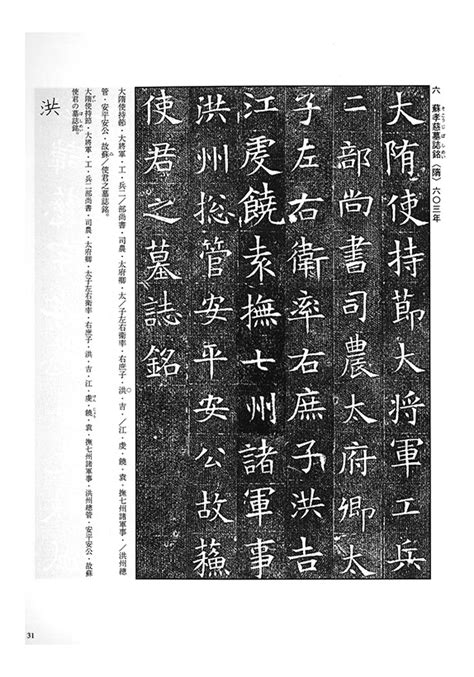 六 蘇孝慈墓誌銘（隋）六〇三年
大隋使持節大将軍工兵
二部尚書司農太府卿太
子左右衛率右庶子洪吉
江虔饒袁撫七州諸軍事
洪州捴管安平安公故蘓
使君之墓誌銘
大隋使持節・大將軍・工・兵二／部尚書・司農・太府卿・太／子左右衛率・右庶子・洪・吉・／江・虔・饒・袁・撫七州諸軍事・／洪州總
管・安平安公・故蘇／使君之墓誌銘。
大隋使持節・大將軍・工・兵二部尚書・司農・太府卿・太子左右衛率・右庶子・洪・吉・江・虔・饒・袁・撫七州諸軍事・洪州總管・安平安公・故蘇
使君の墓誌銘。
洪
31